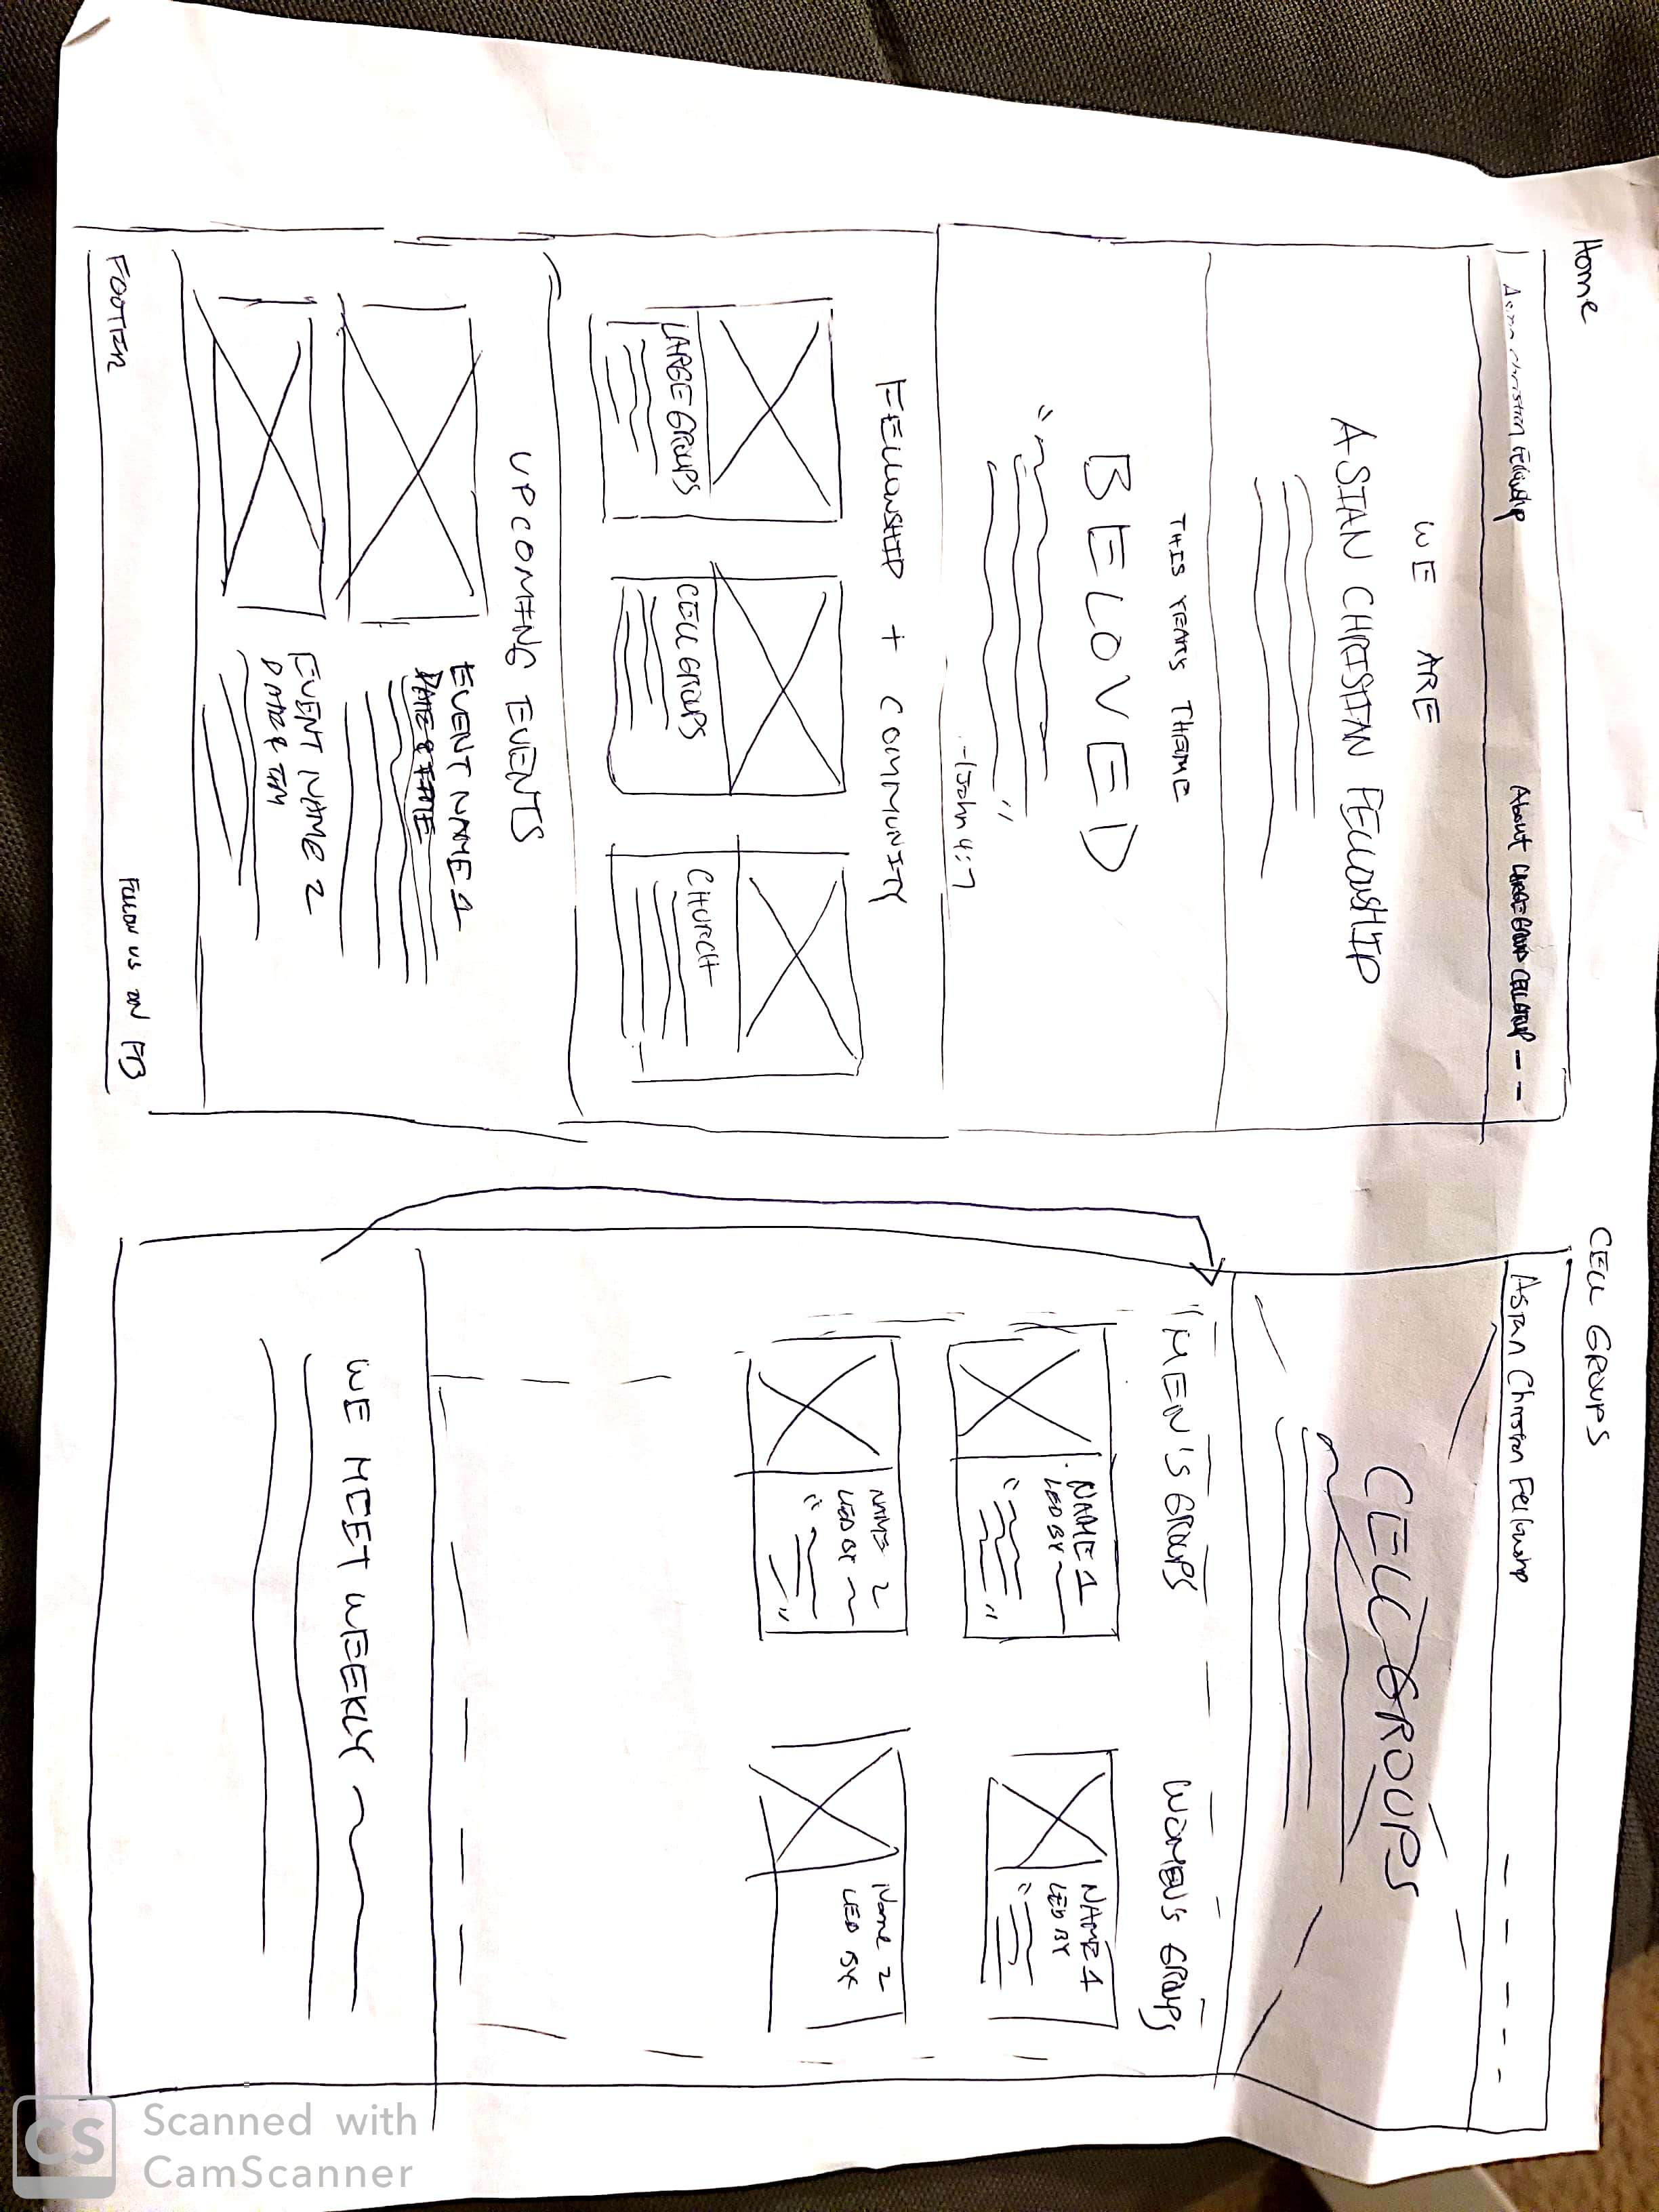 Home
Asian Christian Fellowship
About LARGE GROUP CELL GROUP - -
WE ARE
ASIAN CHRISTIAN FELLOWSHIP
THIS YEARS THEME
BELOVED
"
"
- 1 John 4:7
FELLOWSHIP + COMMUNITY
LARGE GROUPS
CELL GROUPS
CHURCH
UPCOMING EVENTS
EVENT NAME 1
DATE & TIME
EVENT NAME 2
FOOTER
FOLLOW US ON FB
CELL GROUPS
Asian Christian Fellowship
CELL GROUPS
MEN'S GROUPS
WOMEN'S GROUPS
NAME 1
LED BY
"
"
NAME 1
LED BY
"
NAME 2
LED BY
"
"
Name 2
LED BY
WE MEET WEEKLY
CS
Scanned with
CamScanner